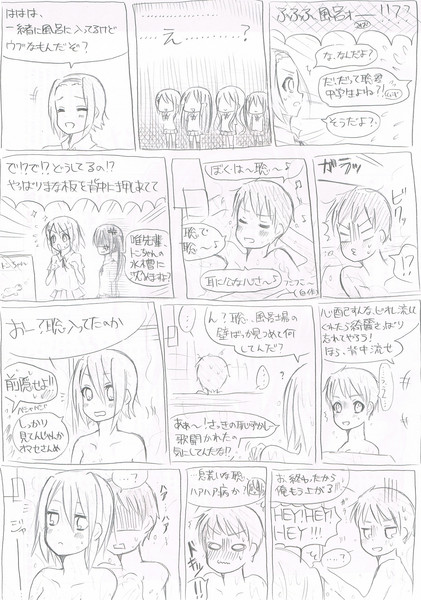 ははは、
一緒に風呂に入ってるけど
ウブなもんだぞ?
え………?
ふふふ風呂ォー!!??
な、なんだよ?
だ、だって聡君
中学生よね?!
そうだよ?
で!?で!?どうしてるの!?
やっぱりまな板を背中に押しあてて
唯先輩、
トンちゃんの
水槽に
沈めますよ?
ぼくは〜聡〜♪
聡で
聡〜♪
ガラッ
ビクッ
!?
おし?聡入ってたのか
前隠せよ!!
しっかり
見てんじゃんか
オマセさんめ
…
ん?聡、風呂場の
壁ばっか見つめて何
してんだ?
あぁ〜!さっきの恥ずかしー
歌聞かれたの
気にしてんだな!?
ほら、背中流せ
…?
ハァ
ハァ
ハアハア病か?
ドキッ
!!
お、終わったから
俺もう上がる
HEY!HEY!
HEY!!!